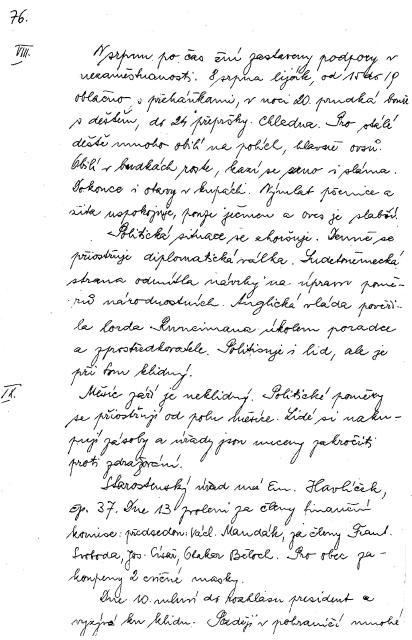 76.
VIII. V srpnu po čas žní zastaveny podpory v
nezaměstnanosti. 8 srpna liják, od 15 do 19
oblačno s přeháňkami, v noci 20. prudká bouře
s deštěm, do 24 přepršky. Chladno. Pro stálé
deště mnoho obilí na polích, hlavně ovsů.
Obilí v budkách roste, kazí se zrno i sláma.
Dokonce i otavy v kupách. Výmlat pšenice a
žita uspokojuje, pouze ječmen a oves je slabší.
Politická situace se zhoršuje. Denně se
přiostřuje diplomatická válka. Sudetoněmecká
strana odmítla návrhy na úpravu pomě-
rů národnostních. Anglická vláda pověři-
la lorda Runcimana úkolem poradce
a zprostředkovatele. Politisuje i lid, ale je
při tom klidný.
IX. Měsíc září je neklidný. Politické poměry
se přiostřují od polu měsíce. Lidé si naku-
pují zásoby a úřady jsou nuceny zakročiti
proti zdražování.
Starostenský úřad má Em. Havlíček,
čp. 37. Dne 13 zvoleni za členy finanční
komise: předsedou: Václ. Mandák, za členy Frant.
Svoboda, Jos. Císař, Otakar Běloch. Pro obec za-
koupeny 2 cvičné masky.
Dne 10. mluví do rozhlasu president a
vyzývá ku klidu. Později v pohraničí mnohé